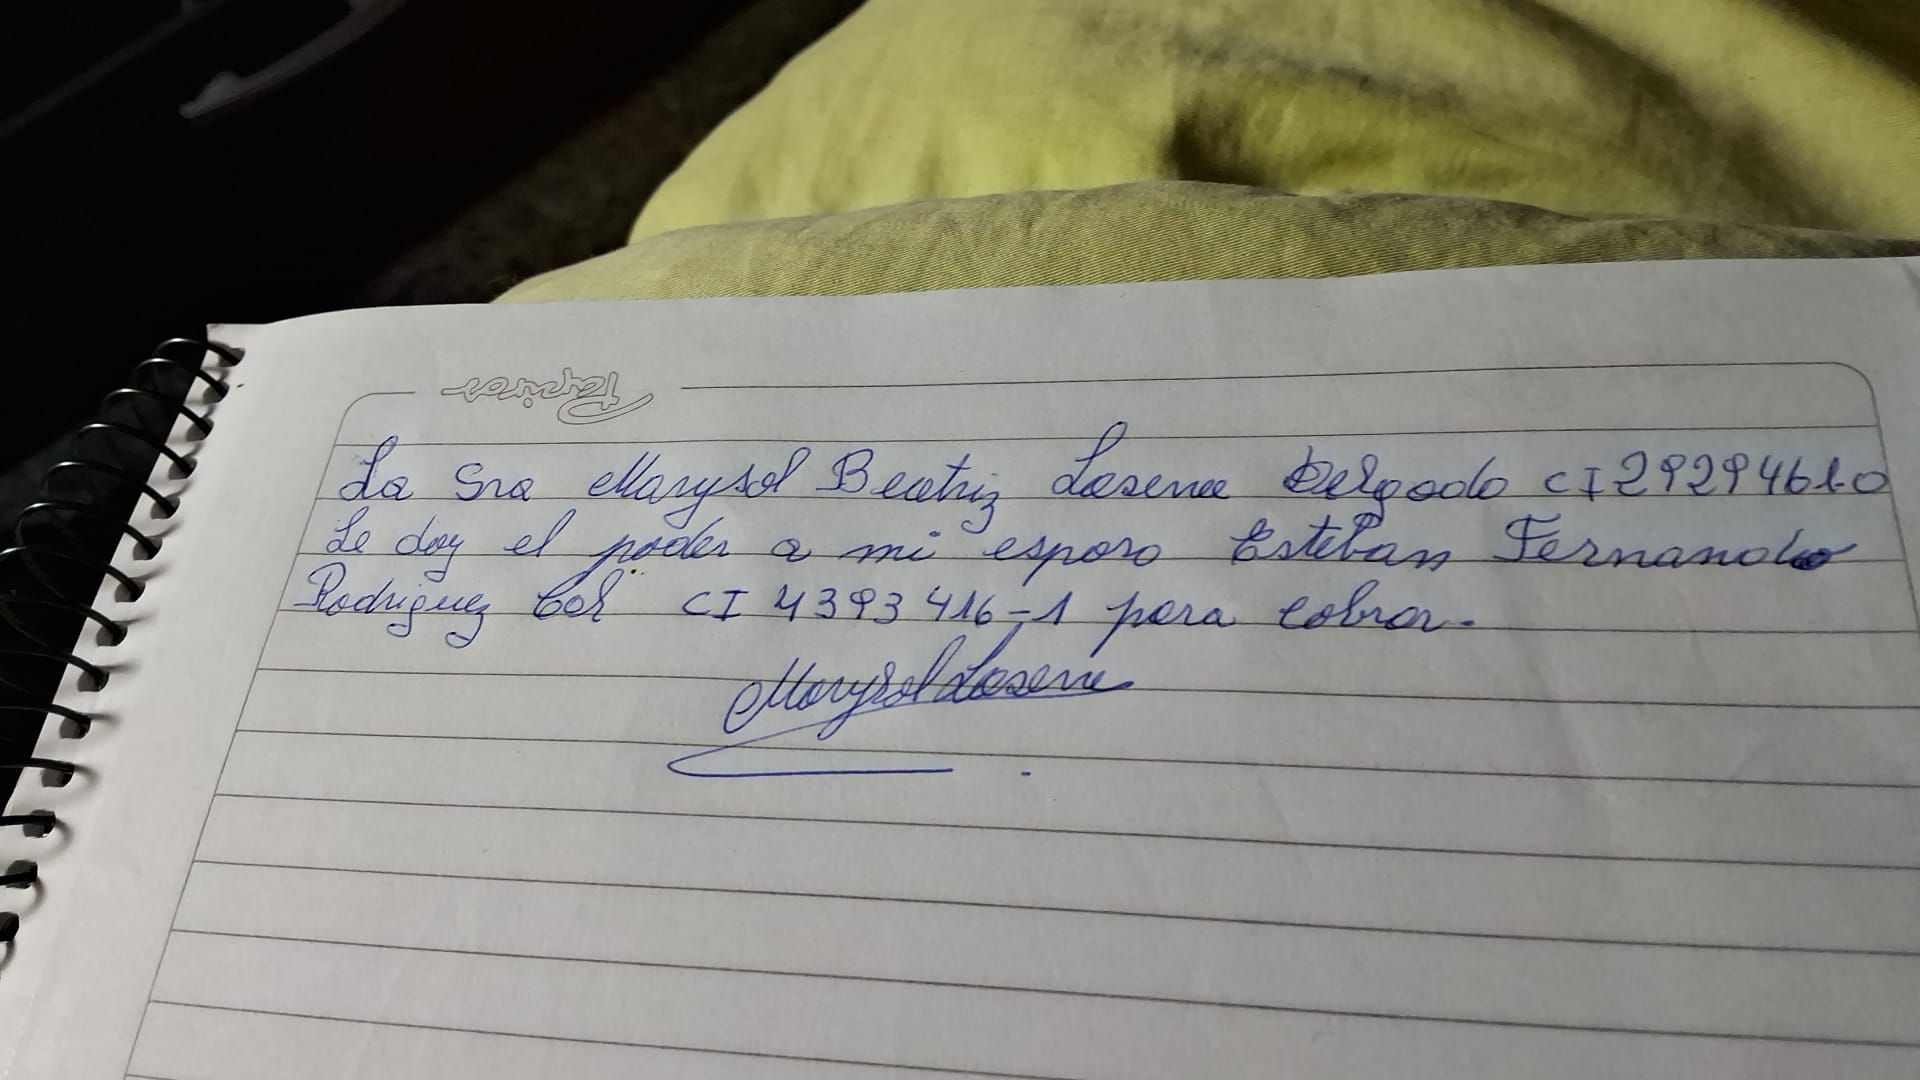 Papiros
La Sra Marysol Beatriz Lasena Delgado CI 2929461-0
Le doy el poder a mi esposo Esteban Fernando
Rodriguez Col CI 4393416-1 para cobrar.
Marysol Lasena